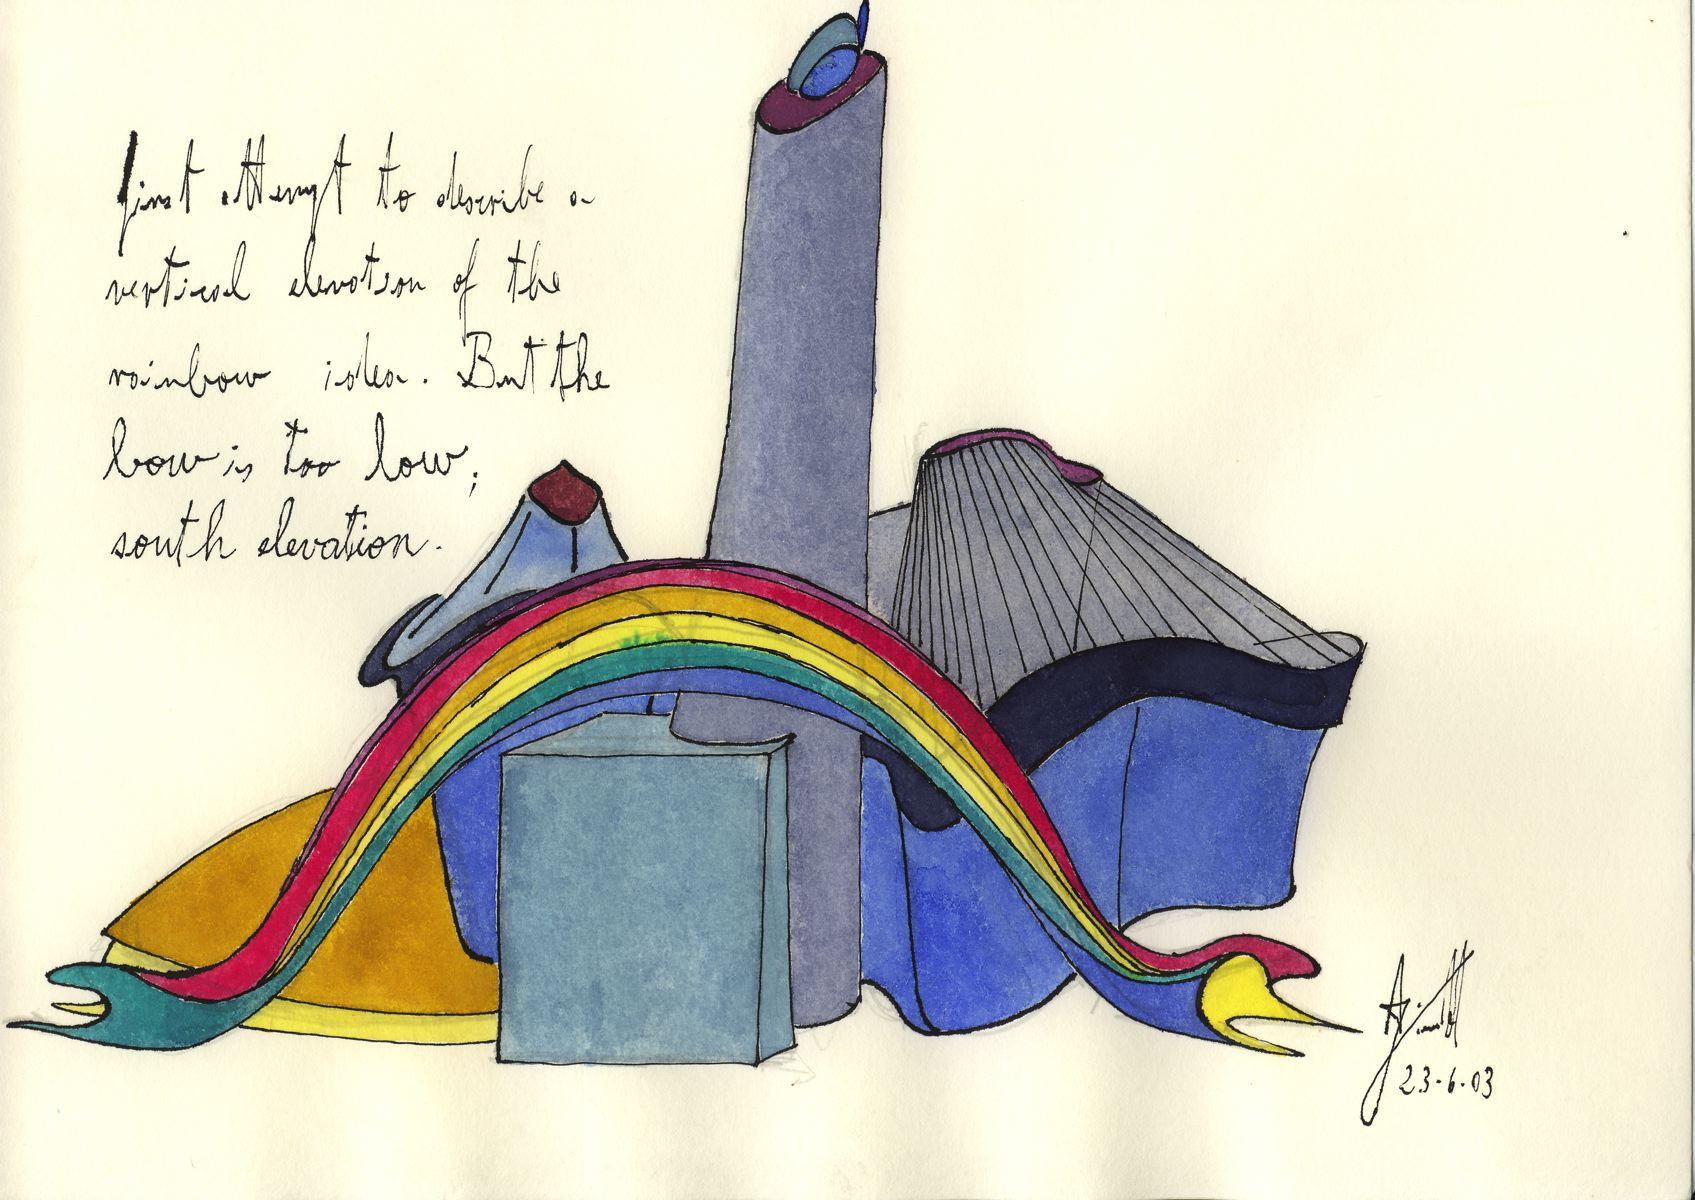 first attempt to describe a
vertical elevation of the
rainbow idea. But the
bow is too low;
south elevation.
23.6.03